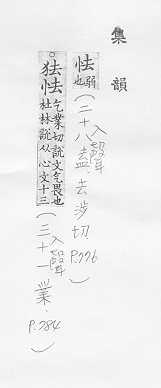 集韻
怯弱也(入聲二十八盍.去涉切 P.776)
○㹤怯乞業切說文多畏也
杜林說从心文十三
(入聲三十一業.P.784)